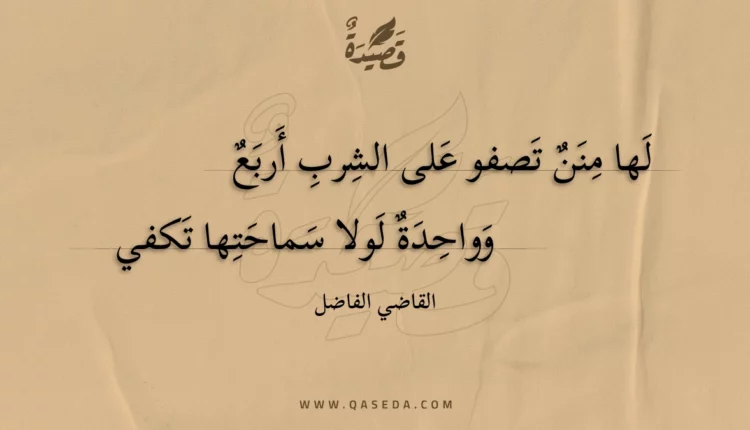 قَصِيدَةٌ
لَها مِنَنٌ تَصفو عَلى الشِربِ أَربَعٌ
وَواحِدَةٌ لَولا سَماحَتِها تَكفي
القاضي الفاضل
WWW.QASEDA.COM